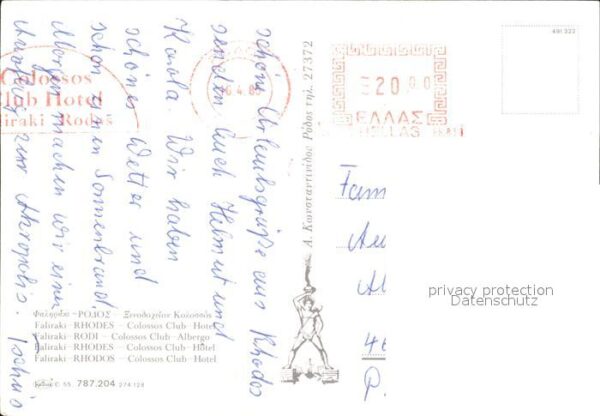 491 322
Colossos
Club Hotel
Faliraki Rodos
20.00
ΕΛΛΑΣ
HELLAS
schöne Urlaubsgrüße aus Rhodos
senden Euch Helmut und
Karola Wir haben
schönes Wetter und
schon einen Sonnenbrand.
Morgen machen wir einen
Ausflug zur Akropolis. Tschüs
Α. Κωνσταντινίδου Ρόδος τηλ. 27372
Fam
privacy protection
Datenschutz
Φαληράκι-ΡΟΔΟΣ - Ξενοδοχεῖον Κολοσσός
Faliraki-RHODES - Colossos Club-Hotel
Faliraki-RODI - Colossos Club-Albergo
Faliraki-RHODES - Colossos Club-Hôtel
Faliraki-RHODOS - Colossos Club-Hotel
C 55 787.204 274 128